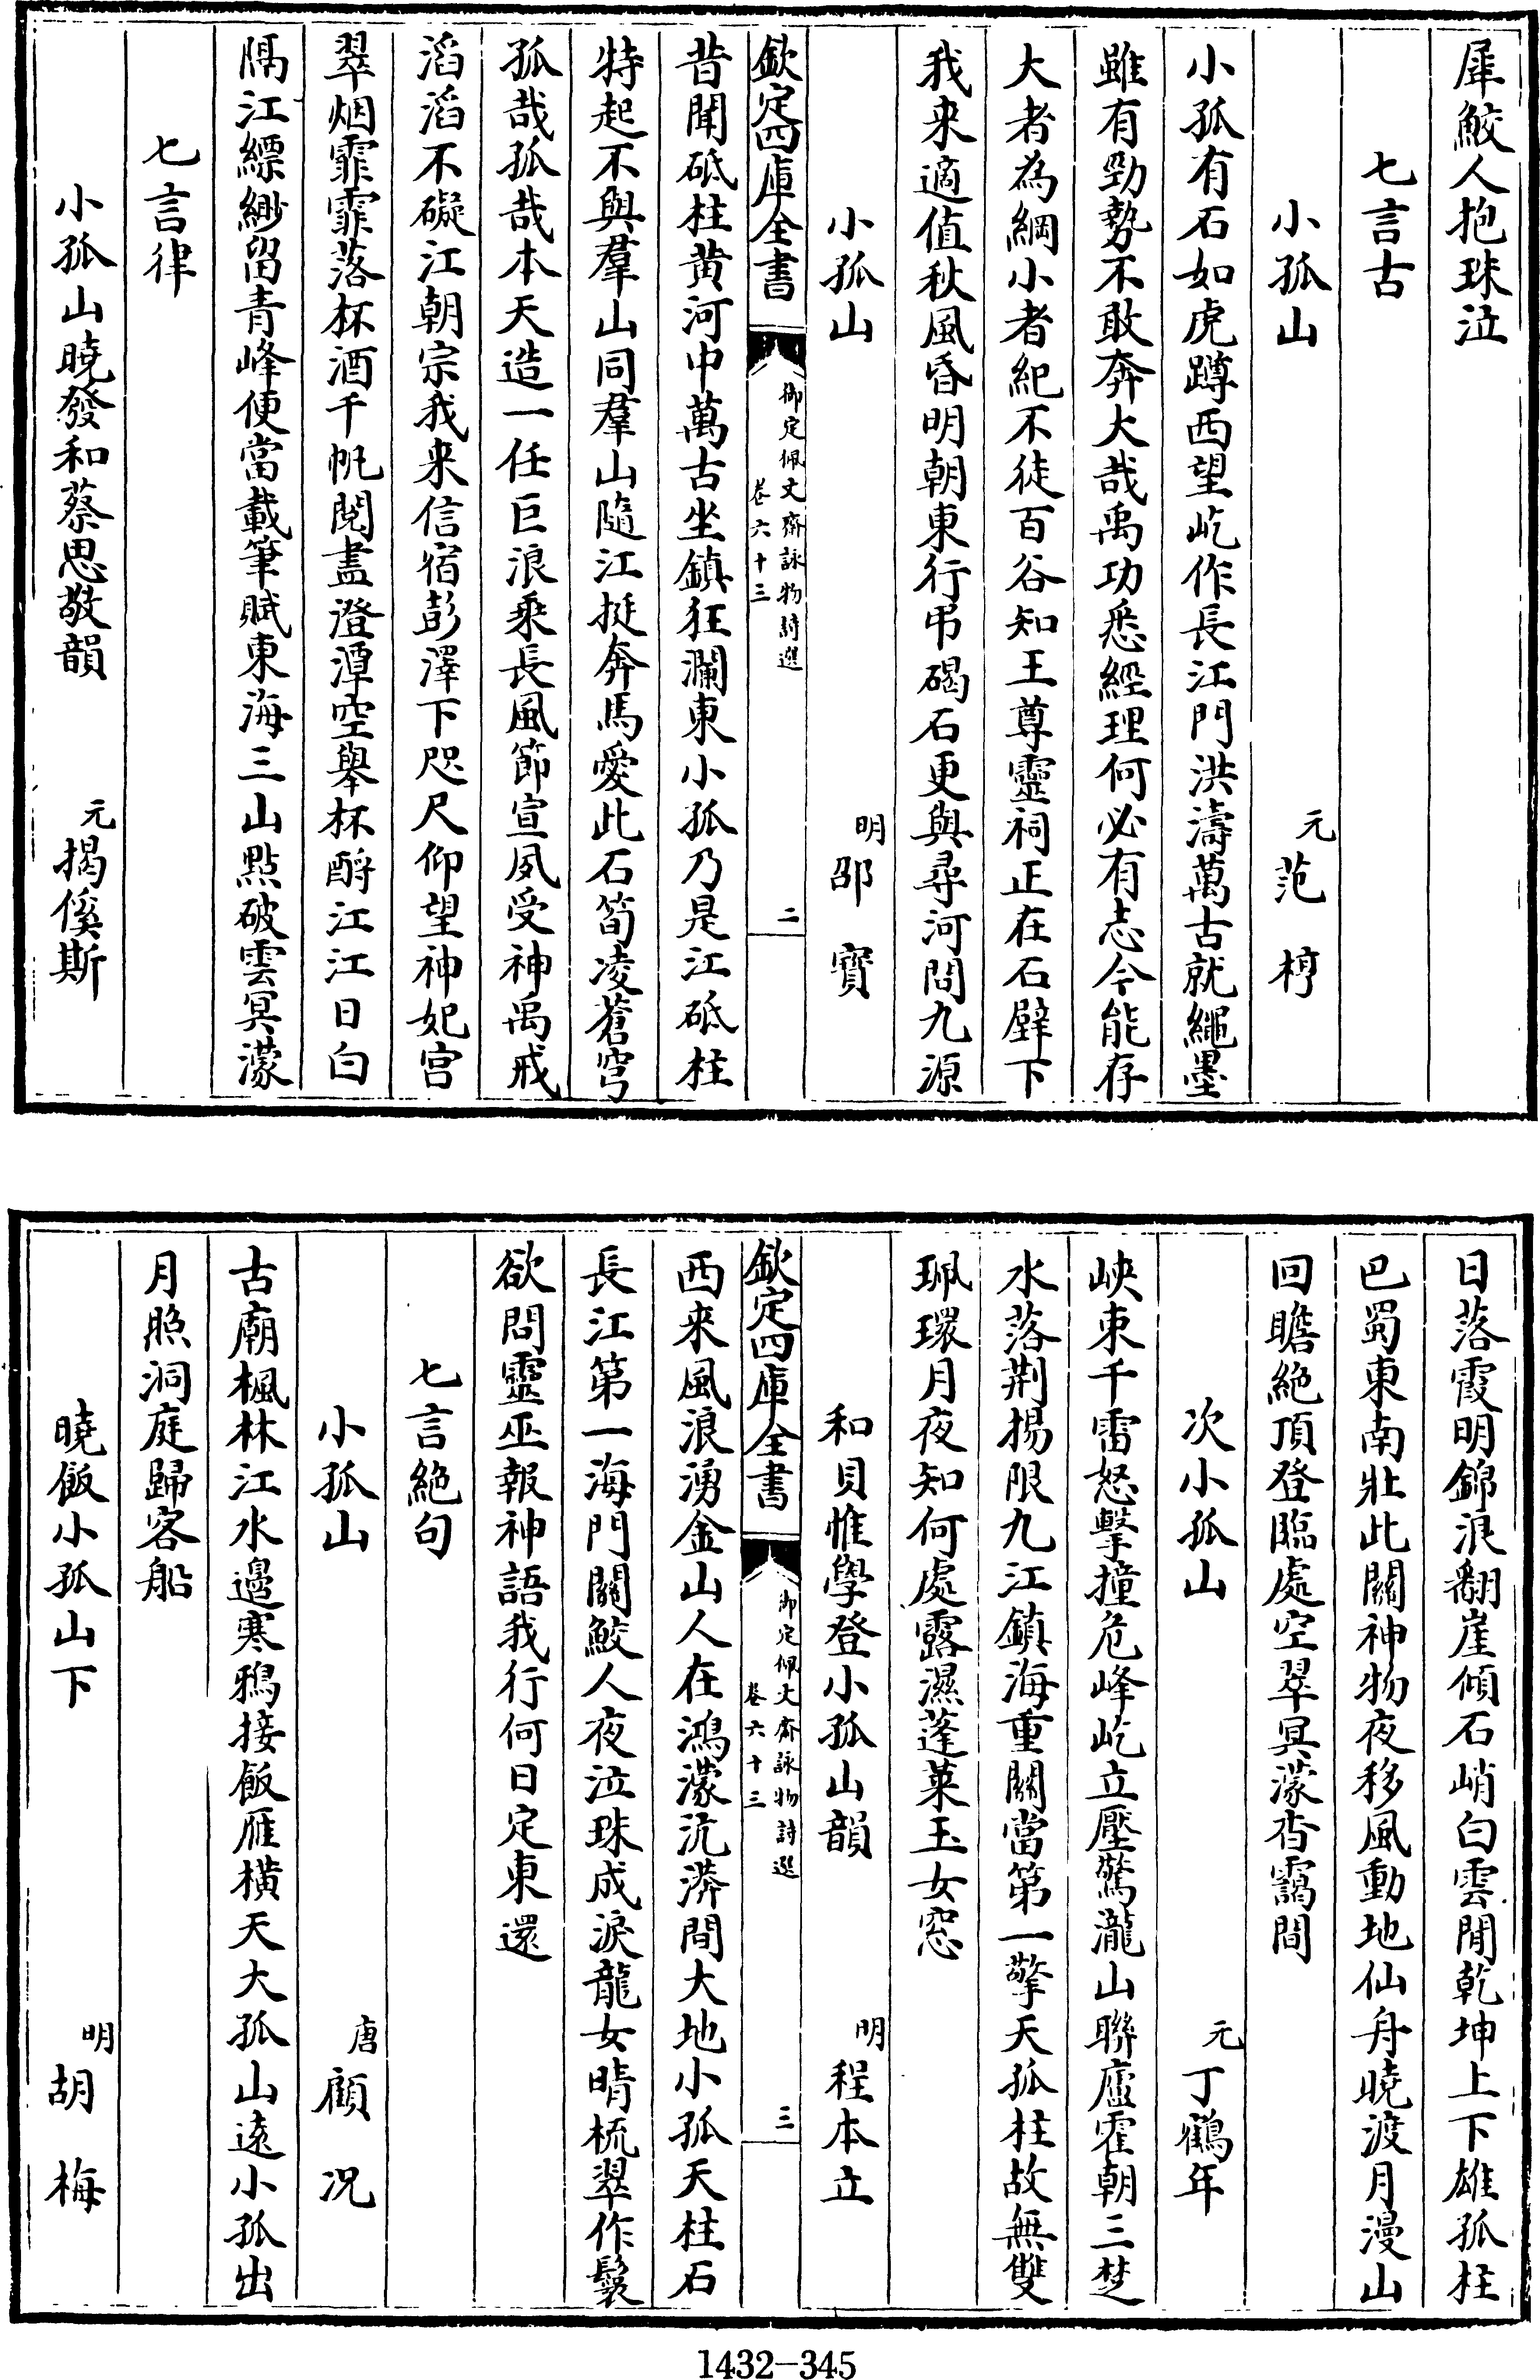 犀鮫人抱珠泣
七言古
小孤山　元范梈
小孤有石如虎蹲西望屹作長江門洪濤萬古就繩墨
雖有勁勢不敢奔大哉禹功悉經理何必有志今能存
大者為綱小者紀不徒百谷知王尊靈祠正在石壁下
我来適值秋風昏明朝東行弔碣石更與尋河問九源
小孤山　明邵寶
欽定四庫全書　御定佩文齋詠物詩選　卷六十三　二
昔聞砥柱黄河中萬古坐鎮狂瀾東小孤乃是江砥柱
特起不與羣山同羣山隨江挺奔馬愛此石筍凌蒼穹
孤哉孤哉本天造一任巨浪乘長風節宣夙受神禹戒
滔滔不礙江朝宗我来信宿彭澤下咫尺仰望神妃宫
翠烟霏霏落杯酒千帆閱盡澄潭空舉杯酹江江日白
隔江縹緲留青峰便當載筆賦東海三山點破雲冥濛
七言律
小孤山曉發和蔡思敬韻　元揭傒斯
日落霞明錦浪翻崖傾石峭白雲閒乾坤上下雄孤柱
巴蜀東南壯此關神物夜移風動地仙舟曉渡月漫山
回瞻絶頂登臨處空翠冥濛杳靄間
次小孤山　元丁鶴年
峽束千雷怒擊撞危峰屹立壓驚瀧山聯廬霍朝三楚
水落荆揚限九江鎮海重關當第一擎天孤柱故無雙
珮環月夜知何處露濕蓬萊玉女窓
和貝惟學登小孤山韻　明程本立
欽定四庫全書　御定佩文齋詠物詩選　卷六十三　三
西来風浪湧金山人在鴻濛沆漭間大地小孤天柱石
長江第一海門關鮫人夜泣珠成淚龍女晴梳翠作鬟
欲問靈巫報神語我行何日定東還
七言絶句
小孤山　唐顧況
古廟楓林江水邊寒鴉接飯雁橫天大孤山遠小孤出
月照洞庭歸客船
曉飯小孤山下　明胡梅
1432-345